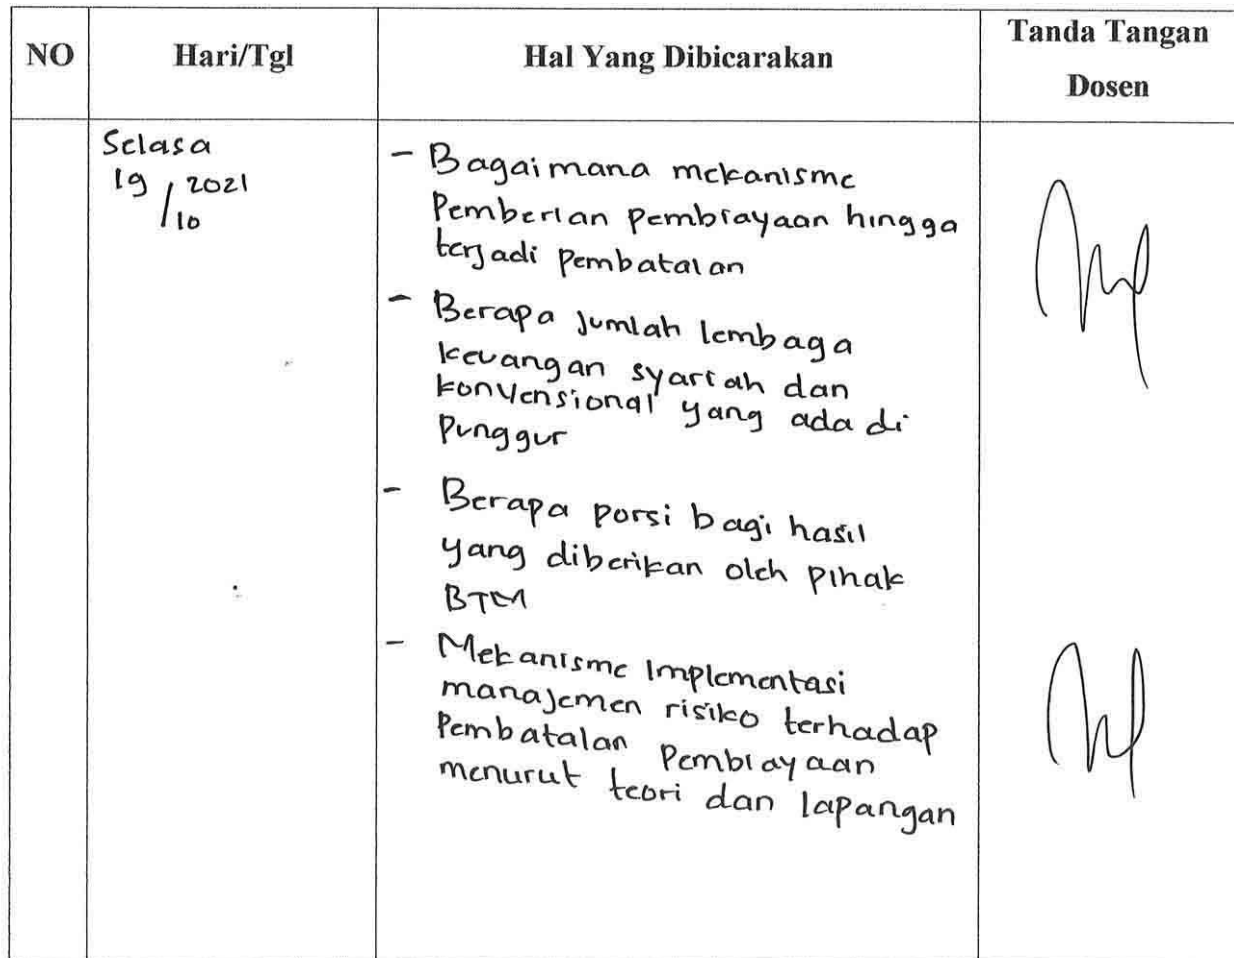 NO Hari/Tgl Hal Yang Dibicarakan Tanda Tangan Dosen
Selasa
19/10 2021
- Bagaimana mekanisme
Pemberian pembiayaan hingga
terjadi pembatalan
- Berapa jumlah lembaga
keuangan syariah dan
konvensional yang ada di
Punggur
- Berapa porsi bagi hasil
yang diberikan oleh pihak
BTM
- Mekanisme Implementasi
manajemen risiko terhadap
Pembatalan Pembiayaan
menurut teori dan lapangan